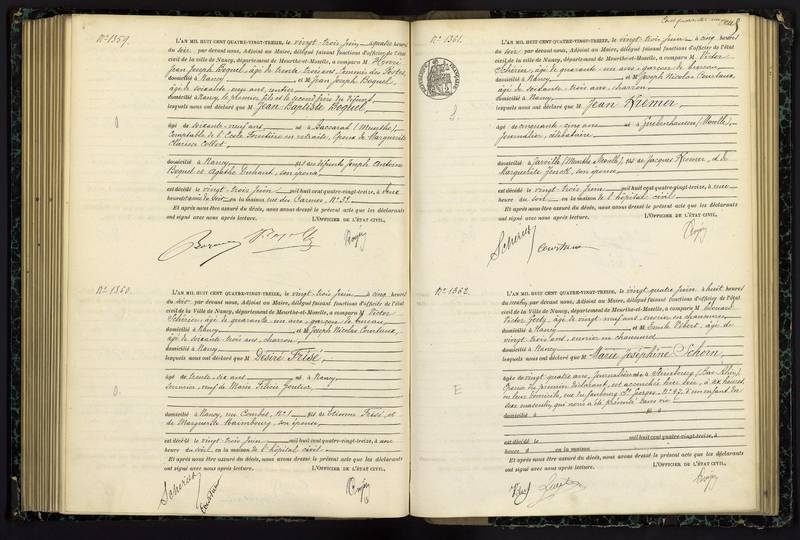 N° 1359.
L'AN MIL HUIT CENT QUATRE-VINGT-TREIZE, le vingt-trois juin à quatre heures
du soir par devant nous, Adjoint au Maire, délégué faisant fonctions d'officier de l'état
civil de la ville de Nancy, département de Meurthe-et-Moselle, a comparu M Henri
Jean Joseph Boquel, âgé de trente trois ans, Commis des Postes
domicilié à Nancy et M Jean Joseph Boquel,
âgé de soixante ans, rentier
domicilié à Nancy, le premier fils et le second frère du défunt
lesquels nous ont déclaré que M Jean Baptiste Boquel
âgé de soixante neuf ans né à Baccarat (Meurthe),
Comptable à l'Ecole Forestière en retraite, Epoux de Marguerite
Clarisse Collot
domicilié à Nancy, fils des défunts Joseph Antoine
Boquel et Agathe son épouse
est décédé le vingt-trois juin mil huit cent quatre-vingt-treize, à une
heure et demie du soir en la maison rue des Carmes, N° 32.
Et après nous être assuré du décès, nous avons dressé le présent acte que les déclarants
ont signé avec nous après lecture. L'OFFICIER DE L'ÉTAT CIVIL,
N° 1360.
L'AN MIL HUIT CENT QUATRE-VINGT-TREIZE, le vingt-trois juin à cinq heures
du soir par devant nous, Adjoint au Maire, délégué faisant fonctions d'officier de l'état
civil de la Ville de Nancy, département de Meurthe-et-Moselle, a comparu M Victor
Scherier, âgé de quarante un ans, garçon de bureau
domicilié à Nancy et M Joseph Nicolas Courtaux,
âgé de soixante trois ans, charron,
domicilié à Nancy
lesquels nous ont déclaré que M Désiré Frisé,
âgé de trente-six ans né à Nancy,
Serrurier, veuf de Marie
domicilié à Nancy, rue N° 1 fils de Etienne Frisé, et
de Marguerite son épouse
est décédé le vingt-trois juin mil huit cent quatre-vingt-treize, à une
heure du soir en la maison de l'hôpital civil.
Et après nous être assuré du décès, nous avons dressé le présent acte que les déclarants
ont signé avec nous après lecture. L'OFFICIER DE L'ÉTAT CIVIL,
N° 1361.
L'AN MIL HUIT CENT QUATRE-VINGT-TREIZE, le vingt-trois juin à cinq heures
du soir par devant nous, Adjoint au Maire, délégué faisant fonctions d'officier de l'état
civil de la ville de Nancy, département de Meurthe-et-Moselle, a comparu M Victor
Scherier, âgé de quarante un ans, garçon de bureau
domicilié à Nancy et M Joseph Nicolas Courtaux,
âgé de soixante trois ans, charron,
domicilié à Nancy
lesquels nous ont déclaré que M Jean Kremer,
âgé de cinquante cinq ans né à (Moselle),
journalier, célibataire
domicilié à Jarville (Meurthe & Moselle), fils de Jacques Kremer, & de
Marguerite son épouse
est décédé le vingt-trois juin mil huit cent quatre-vingt-treize, à une
heure du soir en la maison de l'hôpital civil
Et après nous être assuré du décès, nous avons dressé le présent acte que les déclarants
ont signé avec nous après lecture. L'OFFICIER DE L'ÉTAT CIVIL,
N° 1362.
L'AN MIL HUIT CENT QUATRE-VINGT-TREIZE, le vingt quatre juin à huit heures
du matin, par devant nous, Adjoint au Maire, délégué faisant fonctions d'officier de l'état
civil de la Ville de Nancy, département de Meurthe-et-Moselle, a comparu M Edouard
Victor âgé de vingt neuf ans, ouvrier en chaussures
domicilié à Nancy et M Emile âgé de
vingt trois ans, ouvrier en chaussures
domicilié à Nancy
lesquels nous ont déclaré que M Marie Joséphine Schorn
âgée de vingt quatre ans, journalière née à Strasbourg (Bas-Rhin),
Epouse du premier déclarant, est accouchée hier soir, à dix heures,
en leur domicile, rue du faubourg St Georges N° 47, d'un enfant du
sexe masculin, qui nous a été présenté sans vie
domicilié à
est décédé le mil huit cent quatre-vingt-treize, à
heure d en la maison
Et après nous être assuré du décès, nous avons dressé le présent acte que les déclarants
ont signé avec nous après lecture. L'OFFICIER DE L'ÉTAT CIVIL,